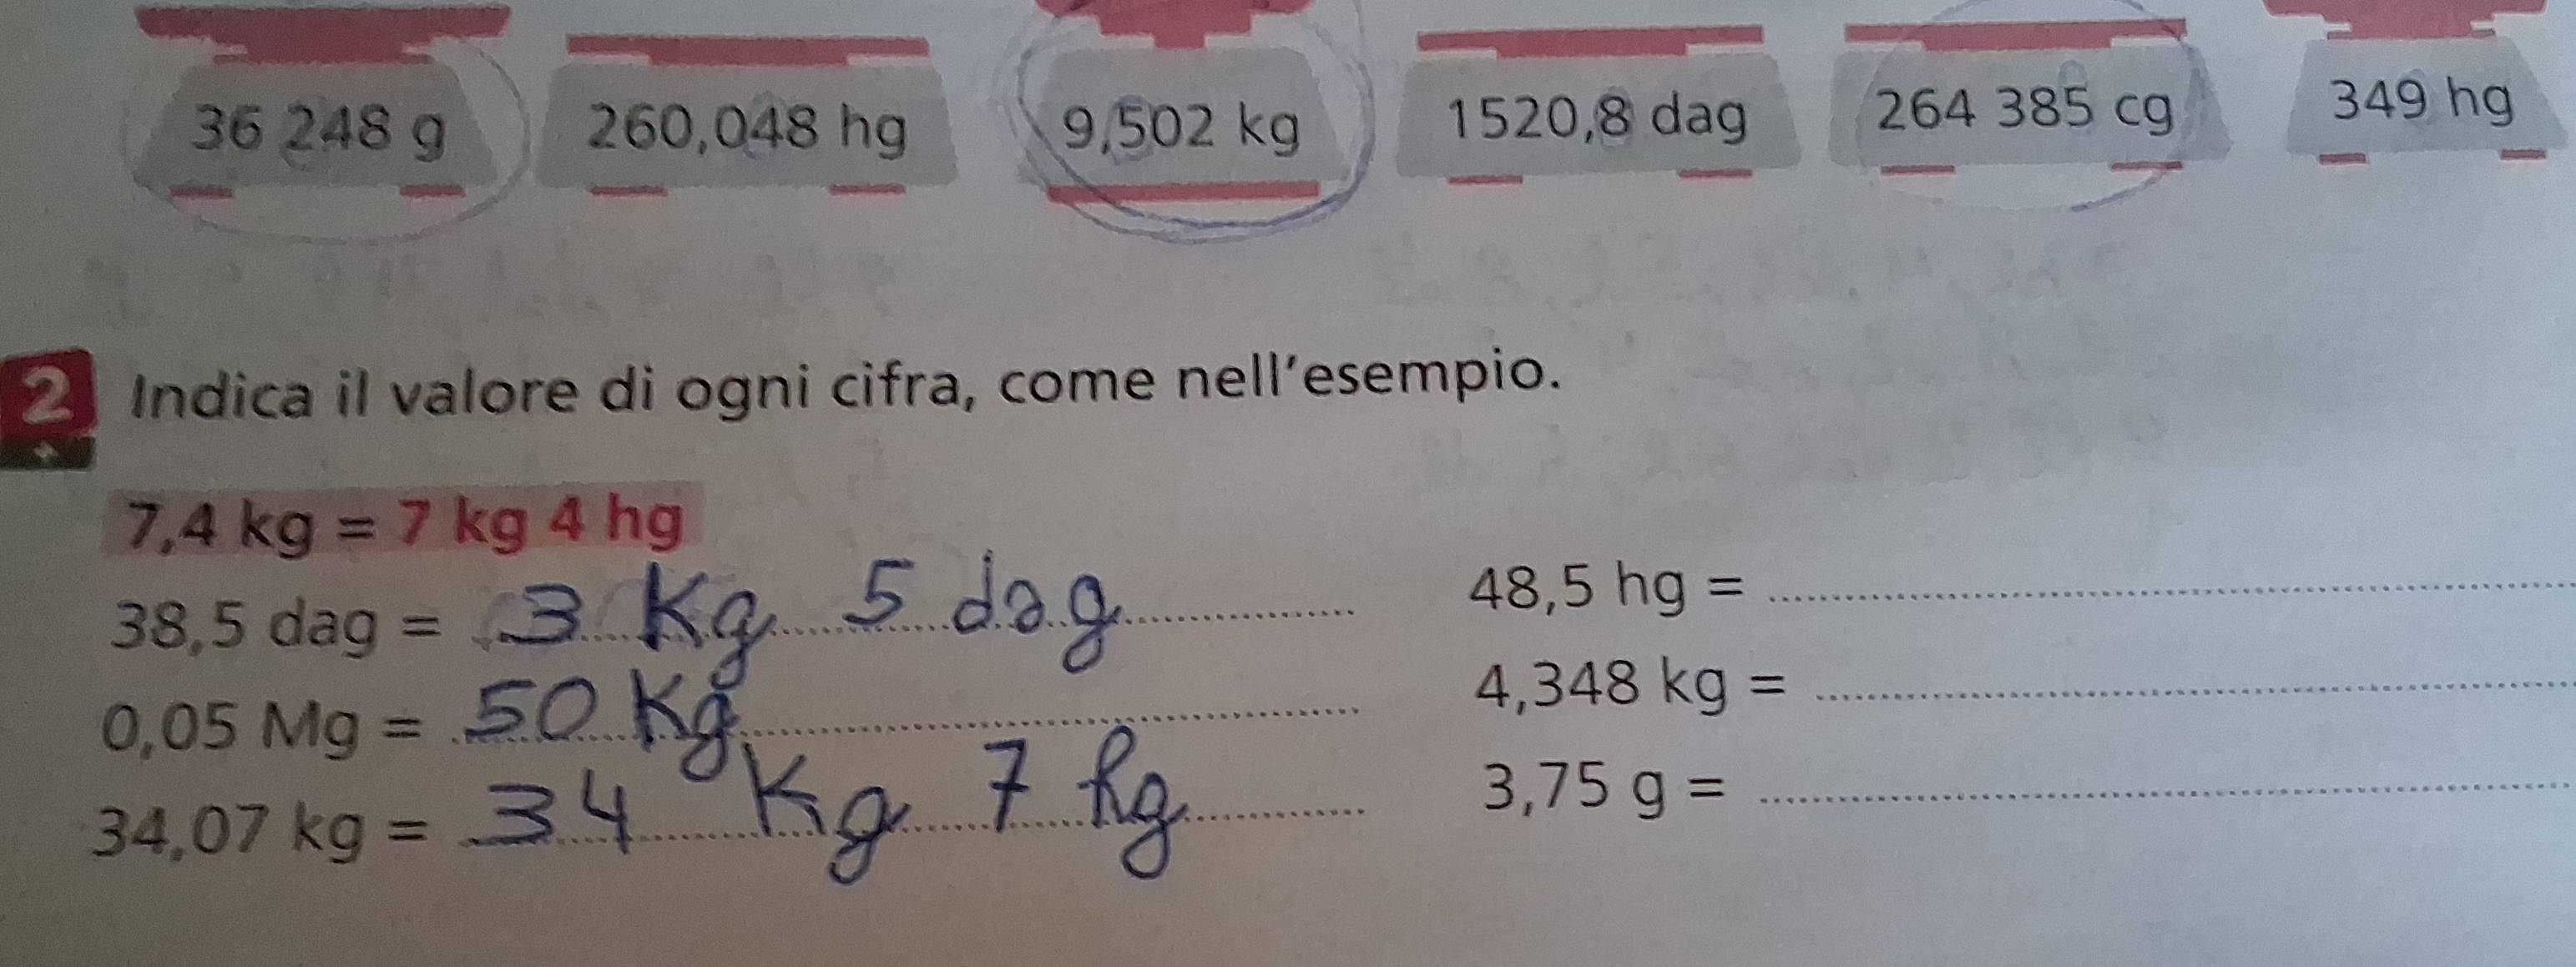 36 248 g 260,048 hg 9,502 kg 1520,8 dag 264 385 cg 349 hg
2 Indica il valore di ogni cifra, come nell'esempio.
7,4 kg = 7 kg 4 hg
38,5 dag = 3 Kg 5 dag
0,05 Mg = 50 Kg
34,07 kg = 34 Kg 7 hg
48,5 hg =
4,348 kg =
3,75 g =